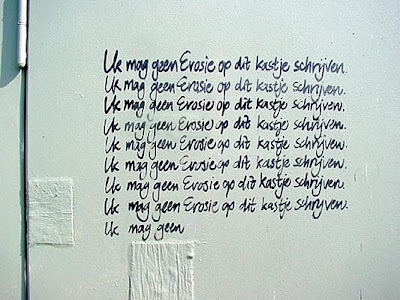 Ik mag geen Erosie op dit kastje schrijven.
Ik mag geen Erosie op dit kastje schrijven.
Ik mag geen Erosie op dit kastje schrijven.
Ik mag geen Erosie op dit kastje schrijven.
Ik mag geen Erosie op dit kastje schrijven.
Ik mag geen Erosie op dit kastje schrijven.
Ik mag geen Erosie op dit kastje schrijven.
Ik mag geen Erosie op dit kastje schrijven.
Ik mag geen